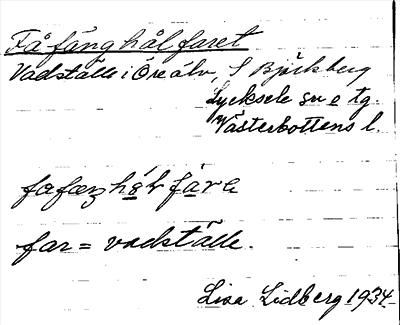 Fåfänghålfaret
Vadställe i Öreälv, S Björkberg
Lycksele sn o tg.
Västerbottens l.
far = vadställe.
Lisa Lidberg 1934